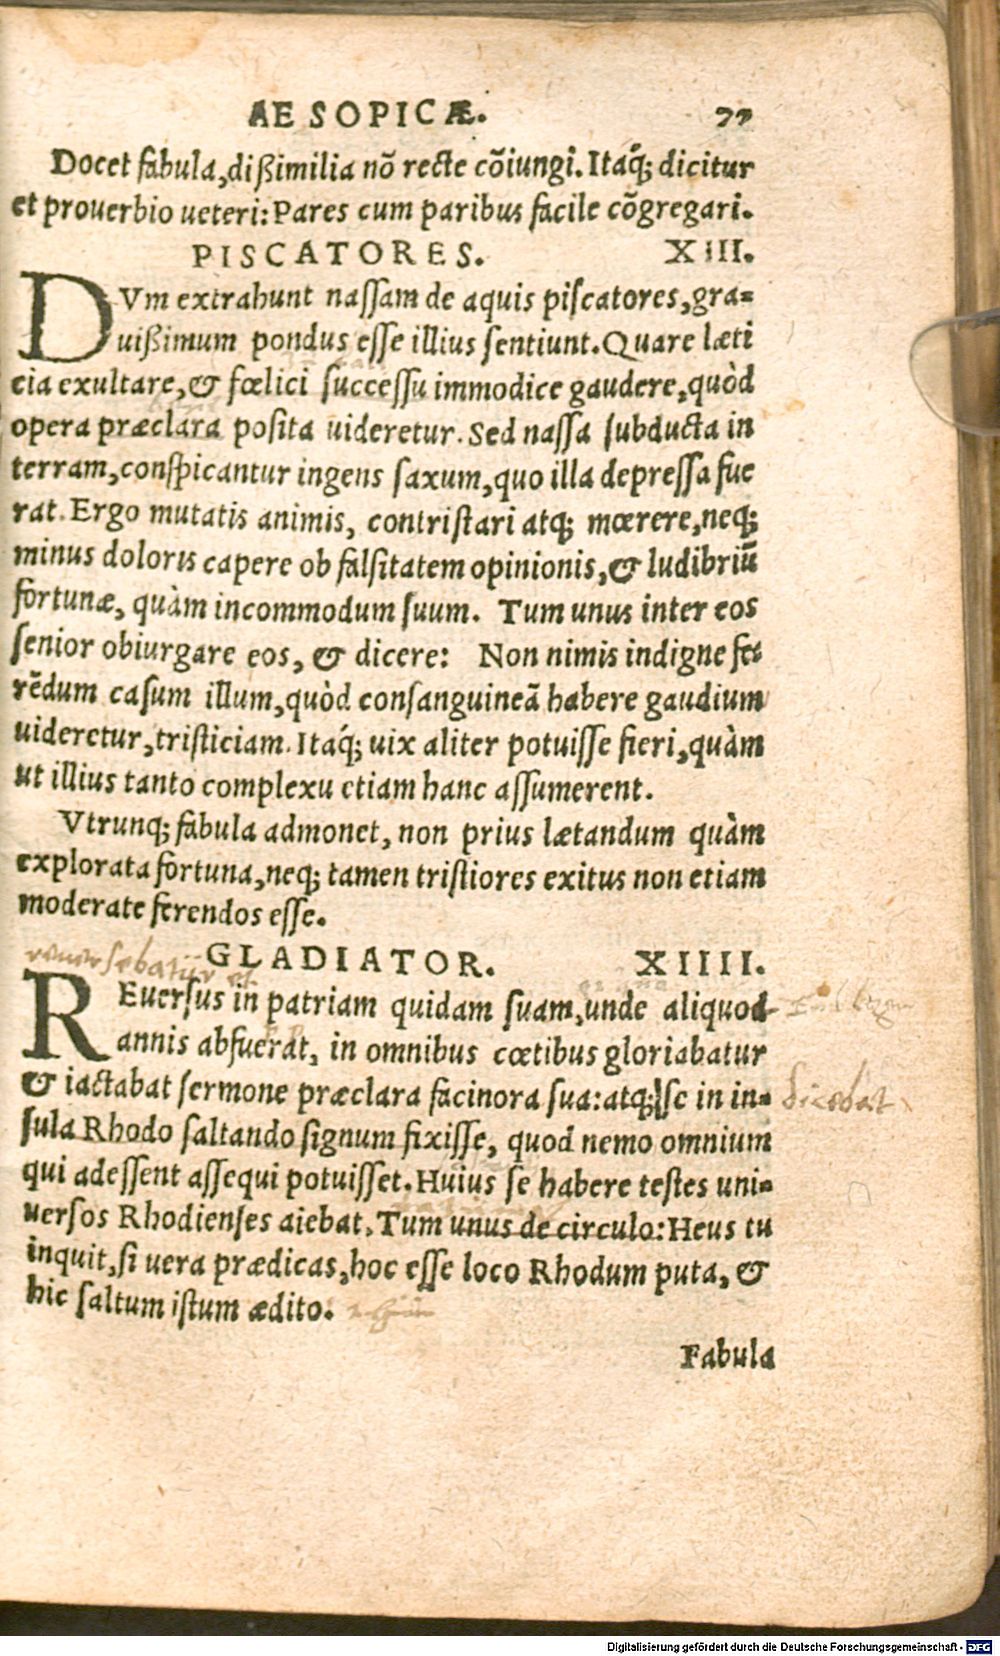 AESOPICÆ. 77
Docet fabula, dißimilia nõ recte cõiungi. Itaq́; dicitur
et prouerbio ueteri: Pares cum paribus facile cõgregari.
PISCATORES. XIII.
DVm extrahunt naſſam de aquis piſcatores, gra=
uißimum pondus eſſe illius ſentiunt. Quare læti
cia exultare, & fœlici ſucceſſu immodice gaudere, quòd
opera præclara poſita uideretur. Sed naſſa ſubducta in
terram, conſpicantur ingens ſaxum, quo illa depreſſa fue
rat. Ergo mutatis animis, contriſtari atq; mœrere, neq;
minus doloris capere ob falſitatem opinionis, & ludibriũ
fortunæ, quàm incommodum ſuum. Tum unus inter eos
ſenior obiurgare eos, & dicere: Non nimis indigne fe=
rẽdum caſum illum, quòd conſanguineã habere gaudium
uideretur, triſticiam. Itaq́; uix aliter potuiſſe fieri, quàm
ut illius tanto complexu etiam hanc aſſumerent.
Vtrunq; fabula admonet, non prius lætandum quàm
explorata fortuna, neq; tamen triſtiores exitus non etiam
moderate ferendos eſſe.
GLADIATOR. XIIII.
REuerſus in patriam quidam ſuam, unde aliquod
annis abfuerat, in omnibus cœtibus gloriabatur
& iactabat ſermone præclara facinora ſua: atq; ſe in in=
dicebat
ſula Rhodo ſaltando ſignum fixiſſe, quod nemo omnium
qui adeſſent aſſequi potuiſſet. Huius ſe habere teſtes uni=
uerſos Rhodienſes aiebat. Tum unus de circulo: Heus tu
inquit, ſi uera prædicas, hoc eſſe loco Rhodum puta, &
hic ſaltum iſtum ædito.
Fabula
Digitalisierung gefördert durch die Deutsche Forschungsgemeinschaft - DFG